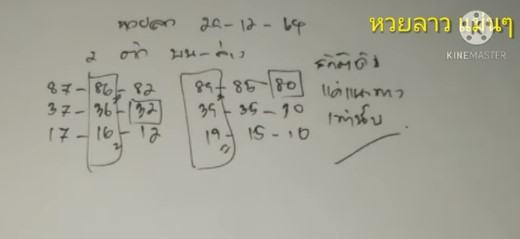 หวยลาว แม่นๆ
KINEMASTER
หวยลาว 29-12-64
2 ตัว บน-ล่าง
87-86-82 89-85-80
37-36-32 39-35-30
17-16-12 19-15-10
แค่แนวทาง
เท่านั้น